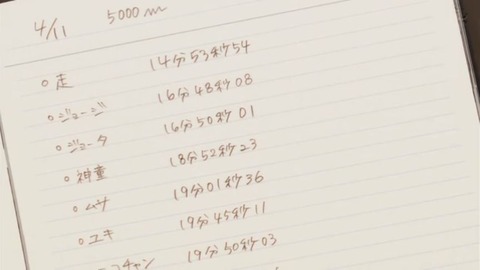 4/11 5000m
○走 14分53秒54
○ジョージ 16分48秒08
○ジョータ 16分50秒01
○神童 18分52秒23
○ムサ 19分01秒36
○ユキ 19分45秒11
コチャン 19分50秒03